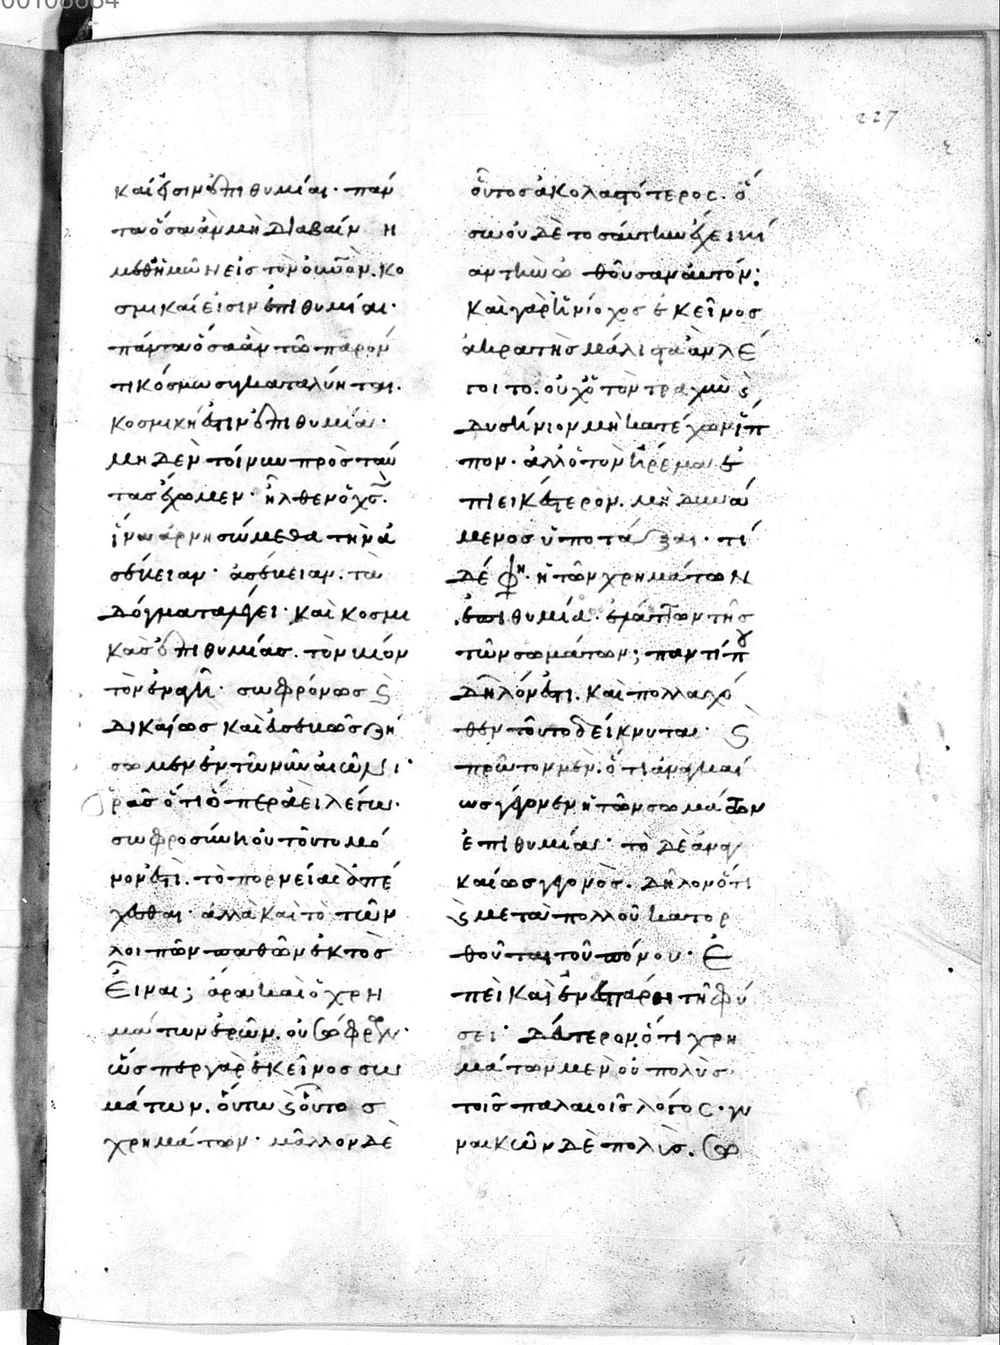 00108684
227
καί εἰσιν ἐπιθυμίαι· πάν
τα ὅσα ἂν μὴ διαβαίνη
μεθ' ἡμῶν εἰς τὸν οὐνὸν. κο
σμικαί εἰσιν ἐπιθυμίαι·
πάντα ὅσα ἂν τῶ παρόν
τι κόσμω συγκαταλύηται.
κοσμική ἐστιν ἐπιθυμία·
μηδὲν τοίνυν πρὸς ταύ
τας ἔχωμεν· ἦλθεν ὁ χς.
ἵνα ἀρνησώμεθα τὴν ἀ
σέβειαν· ἀσέβειαν. τὰ
δόγματα λέγει· καὶ κοσμι
κὰς ἐπιθυμίας. τὸν βίον
τὸν ἐναγῆ· σωφρόνως ϛ
δικαίως καὶ εὐσεβῶς ζή
σωμεν ἐν τῶ νῦν αἰῶνι·
ὁρᾶς ὅτι ὅπερ ἀεὶ λέγω·
σωφροσύνη οὐ τοῦτο μό
νον ἐστι. τὸ πορνείας ἀπέ
χεσθαι· ἀλλὰ καὶ τὸ τῶν
λοιπῶν παθῶν ἐκτὸς
εἶναι; ἄρα καὶ ὁ χρη
μάτων ἐρῶν. οὐ σώφρων·
ὥσπερ γὰρ ἐκεῖνος σω
μάτων. οὕτω ϛ οὗτος
χρημάτων· μᾶλλον δὲ
οὗτος ἀκολαστότερος. ὅ
σω οὐδὲ τοσαύτην ἔχει βί
αν τὴν ὠθοῦσαν αὐτόν·
καὶ γὰρ ἡνίοχος ἐκεῖνος
ἀκρατὴς μάλιστα ἂν λέ
γοιτο. οὐχ ὁ τὸν τραχὺν ϛ
δυσήνιον μὴ κατέχων ἵπ
πον· ἀλλ' ὁ τὸν ἥρεμον ἐ
πιεικέστερον. μὴ δυνά
μενος ὑποτάξαι· τί
δέ φη. ἡ τῶν χρημάτων
ἐπιθυμία. ἐλάττων τῆς
τῶν σωμάτων; παντί π
δῆλόν ἐστι. καὶ πολλαχό
θεν τοῦτο δείκνυται· ϛ
πρῶτον μὲν. ὅτι ἀναγκαί
ως γέγονεν ἡ τῶν σωμάτων
ἐπιθυμία· τὸ δὲ ἀναγ
καίως γεγονὸς. δῆλον ὅτι
ϛ μετὰ πολλοῦ κατορ
θοῦται τοῦ πόνου· ἐ
πεὶ καὶ ἐνέσπαρται τῆ φύ
σει· δεύτερον, ὅτι χρη
μάτων μὲν οὐ πολὺς
τοῖς παλαιοῖς λόγος· γυ
ναικῶν δὲ πολὺς. σω